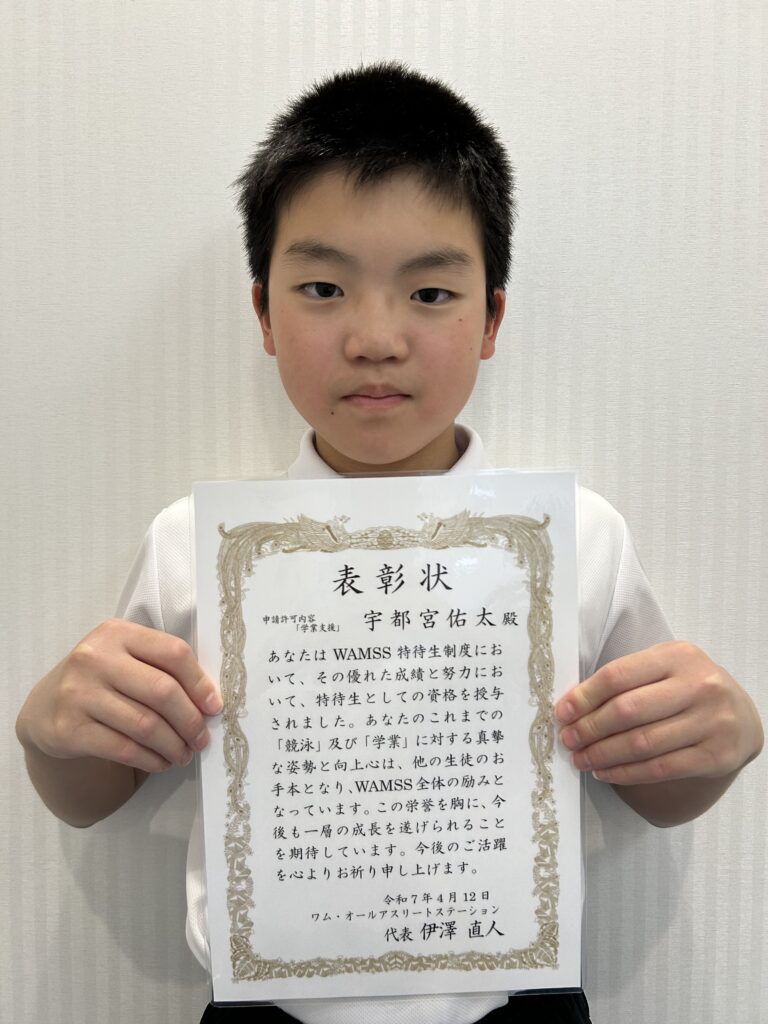 表彰状
申請許可内容
「学業支援」
宇都宮佑太 殿
あなたは WAMSS 特待生制度にお
いて、その優れた成績と努力にお
いて、特待生としての資格を授与
されました。あなたのこれまでの
「競泳」及び「学業」に対する真摯
な姿勢と向上心は、他の生徒のお
手本となり、WAMSS 全体の励みと
なっています。この栄誉を胸に、今
後も一層の成長を遂げられること
を期待しています。今後のご活躍
を心よりお祈り申し上げます。
令和7年4月12日
ワム・オールアスリートステーション
代表 伊澤 直人